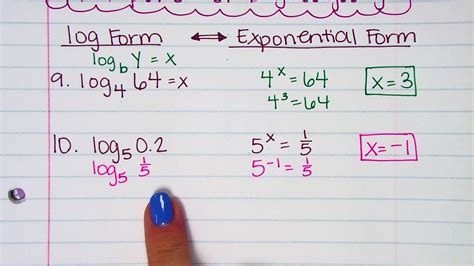 log Form ↔ Exponential Form
log_b Y = x
9. log₄ 64 = x 4ˣ = 64 x = 3
4³ = 64
10. log₅ 0.2 5ˣ = 1/5 x = -1
log₅ 1/5 5⁻¹ = 1/5